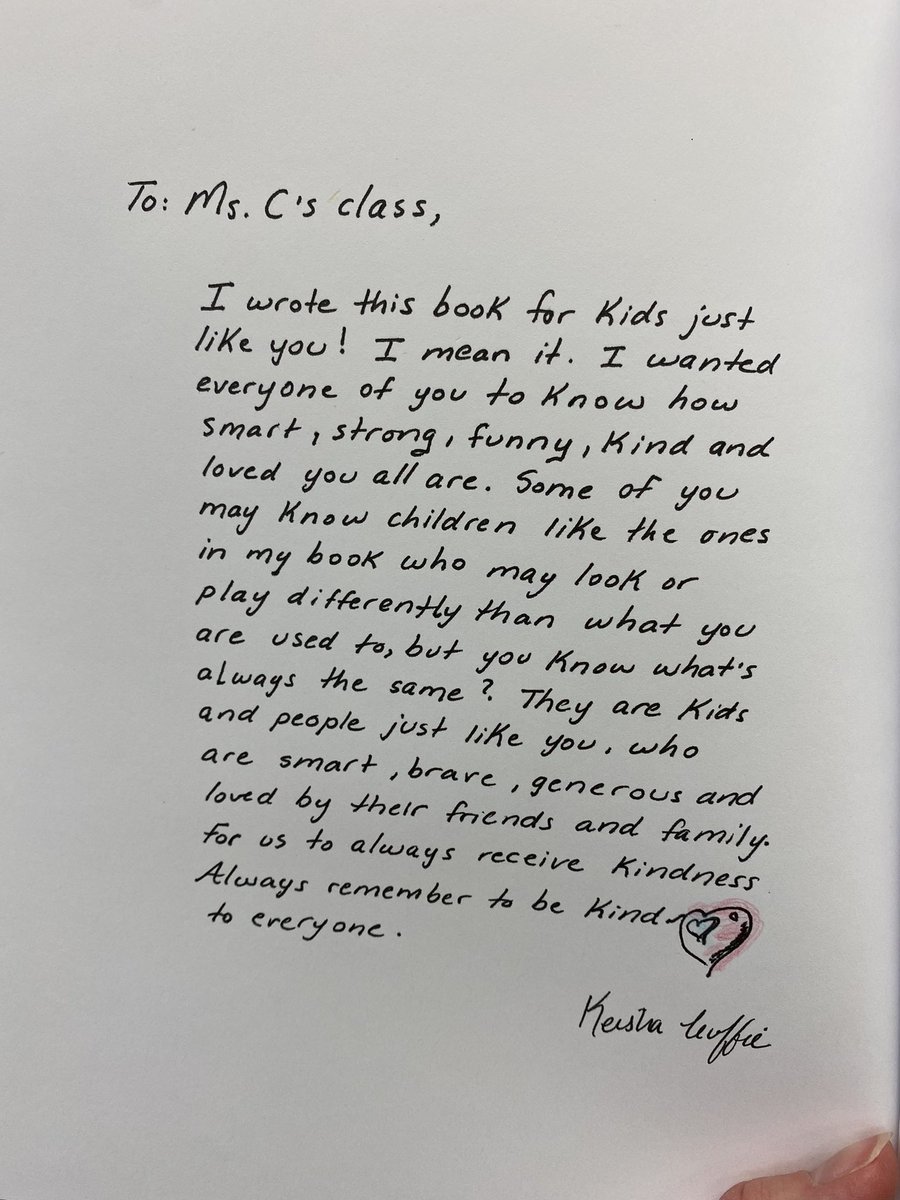 To: Ms. C's class,
I wrote this book for Kids just
like you! I mean it. I wanted
everyone of you to Know how
smart, strong, funny, Kind and
loved you all are. Some of you
may Know children like the ones
in my book who may look or
play differently than what you
are used to, but you Know what's
always the same? They are Kids
and people just like you, who
are smart, brave, generous and
loved by their friends and family.
For us to always receive Kindness
Always remember to be Kind
to everyone.
Keisha